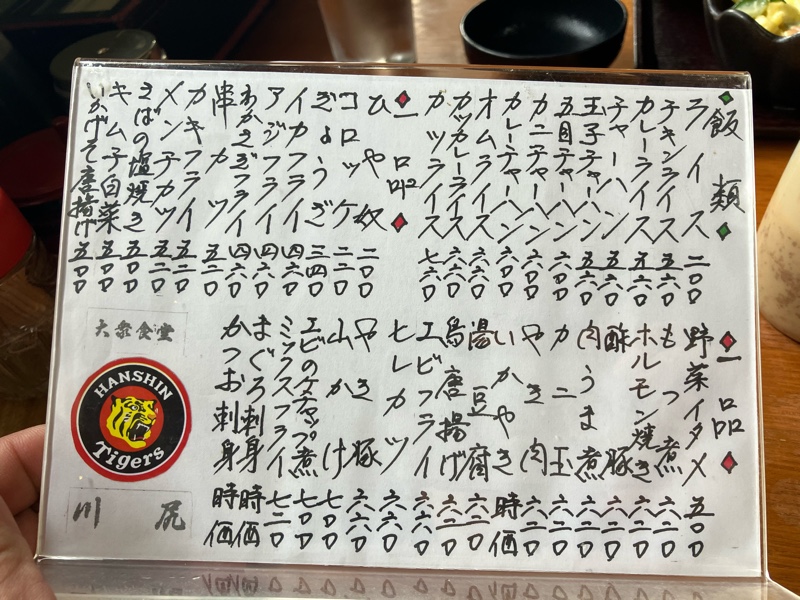 ◆飯類◆
ライス 二〇〇
チキンライス
カレーライス
チャーハン
玉子チャーハン
五目チャーハン
カニチャーハン
カレーチャーハン
オムライス
カツカレーライス
カツライス 七六〇
◆一品◆
ひや奴 二〇〇
コロッケ 二二〇
ぎょうざ 三四〇
イカフライ 四六〇
アジフライ 四六〇
わかさぎフライ 四六〇
串カツ 五二〇
カキフライ 五二〇
メンチカツ 五二〇
さばの塩焼き
キムチ白菜
いかげそ唐揚げ 五〇〇
◆一品◆
野菜イタメ 五〇〇
もつ煮 六二〇
ホルモン焼き 六二〇
酢豚 六二〇
肉うま煮 六二〇
カニ玉 六二〇
やき肉 六二〇
いかやき 時価
湯豆腐 六二〇
鳥唐揚げ 六二〇
エビフライ 六二〇
ヒレカツ 六六〇
やき豚 六六〇
山かけ 七〇〇
エビのケチャップ煮 七〇〇
ミックスフライ 七二〇
まぐろ刺身 時価
かつお刺身 時価
大衆食堂
HANSHIN
Tigers
川尻